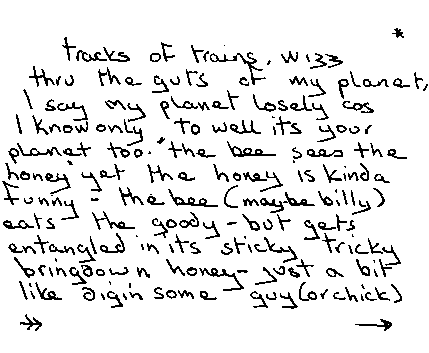 *
tracks of trains, wizz
thru the guts of my planet,
I say my planet losely cos
I know only to well its your
planet too. "the bee sees the
honey" yet the honey is kinda
funny - the bee (maybe billy)
eats the goody - but gets
entangled in its sticky tricky
bringdown honey - just a bit
like digin some guy (or chick)